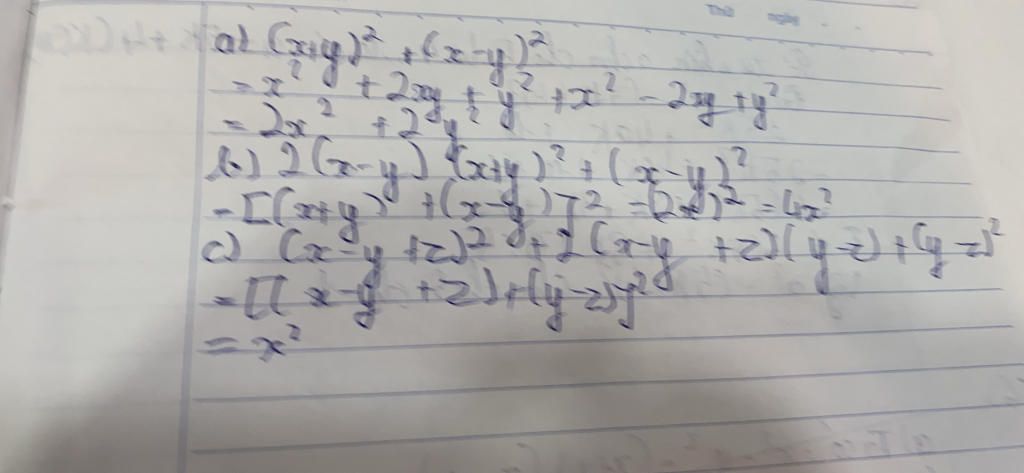 Thứ ngày
a) (x+y)² + (x-y)²
= x² + 2xy + y² + x² - 2xy + y²
= 2x² + 2y²
b) 2(x-y) (x+y)² + (x-y)²
= [(x+y) + (x-y)]² = (2x)² = 4x²
c) (x-y+z)² + 2(x-y+z)(y-z) + (y-z)²
= [(x-y+z) + (y-z)]²
= x²